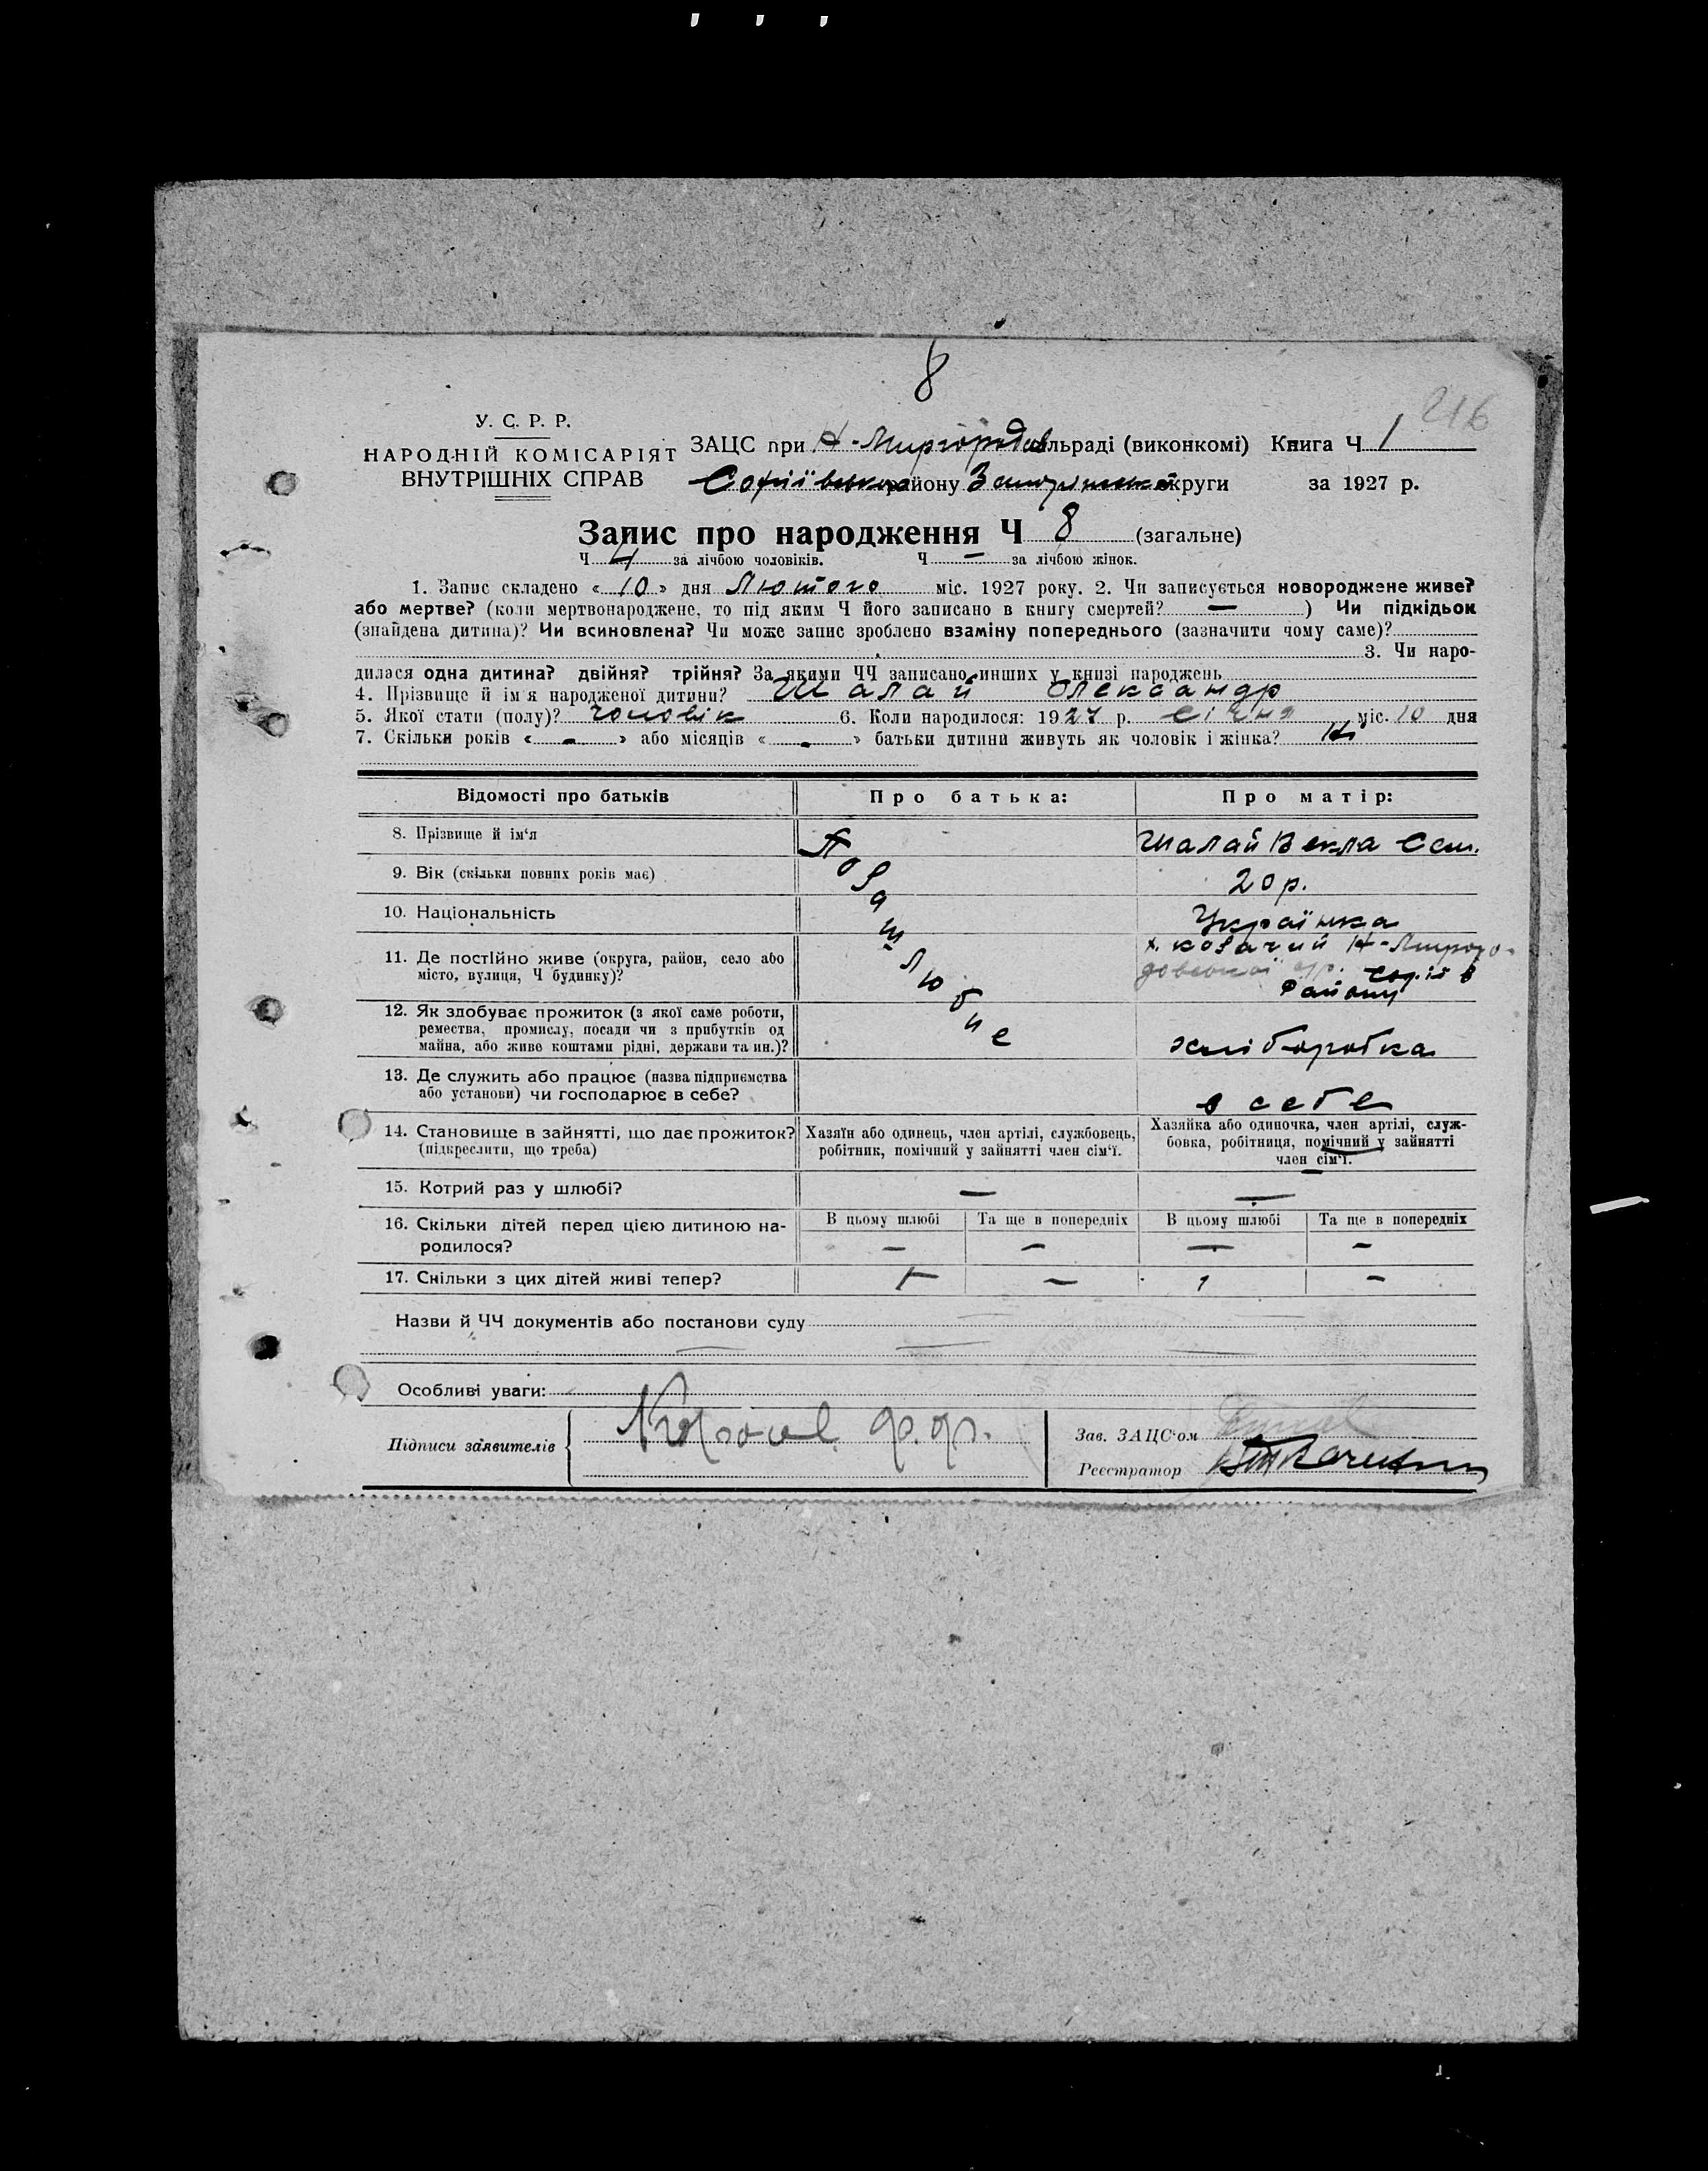 8
216
У. С. Р. Р.
НАРОДНІЙ КОМІСАРІЯТ
ВНУТРІШНІХ СПРАВ
ЗАЦС при Н-Миргородів льраді (виконкомі) Книга Ч 1
Софіївськ району Запоріжськ округи за 1927 р.
Запис про народження Ч 8 (загальне)
Ч 4 за лічбою чоловіків. Ч — за лічбою жінок.
1. Запис складено « 10 » дня Лютого міс. 1927 року. 2. Чи записується новороджене живе?
або мертве? (коли мертвонароджене, то під яким Ч його записано в книгу смертей? — ) Чи підкідьок
(знайдена дитина)? Чи всиновлена? Чи може запис зроблено взаміну попереднього (зазначити чому саме)?
3. Чи наро-
дилася одна дитина? двійня? трійня? За якими ЧЧ записано инших у книзі народжень
4. Прізвище й ім'я народженої дитини? Шалай Олександр
5. Якої стати (полу)? чоловік 6. Коли народилося: 1927 р. січня міс. 10 дня
7. Скільки років « - » або місяців « - » батьки дитини живуть як чоловік і жінка? Ні
Відомості про батьків Про батька: Про матір:
8. Прізвище й ім'я Шалай Векла Сем.
Позашлюбне
9. Вік (скільки повних років має) 20 р.
10. Національність Українка
11. Де постійно живе (округа, район, село або
місто, вулиця, Ч будинку)?
х. козачий Н-Миргоро-
довської с/р. Софіїв
району
12. Як здобуває прожиток (з якої саме роботи,
ремества, промислу, посади чи з прибутків од
майна, або живе коштами рідні, держави та ин.)?
хліборобка
13. Де служить або працює (назва підприємства
або установи) чи господарює в себе?
в себе
14. Становище в зайнятті, що дає прожиток?
(підкреслити, що треба)
Хазяїн або одинець, член артілі, службовець,
робітник, помічний у зайнятті член сім'ї.
Хазяйка або одиночка, член артілі, служ-
бовка, робітниця, помічний у зайнятті
член сім'ї.
15. Котрий раз у шлюбі? — —
16. Скільки дітей перед цією дитиною на-
родилося?
В цьому шлюбі Та ще в попередніх В цьому шлюбі Та ще в попередніх
— — — —
17. Скільки з цих дітей живі тепер? — 1 —
Назви й ЧЧ документів або постанови суду
Особливі уваги:
Підписи заявителів
Зав. ЗАЦС'ом
Реєстратор